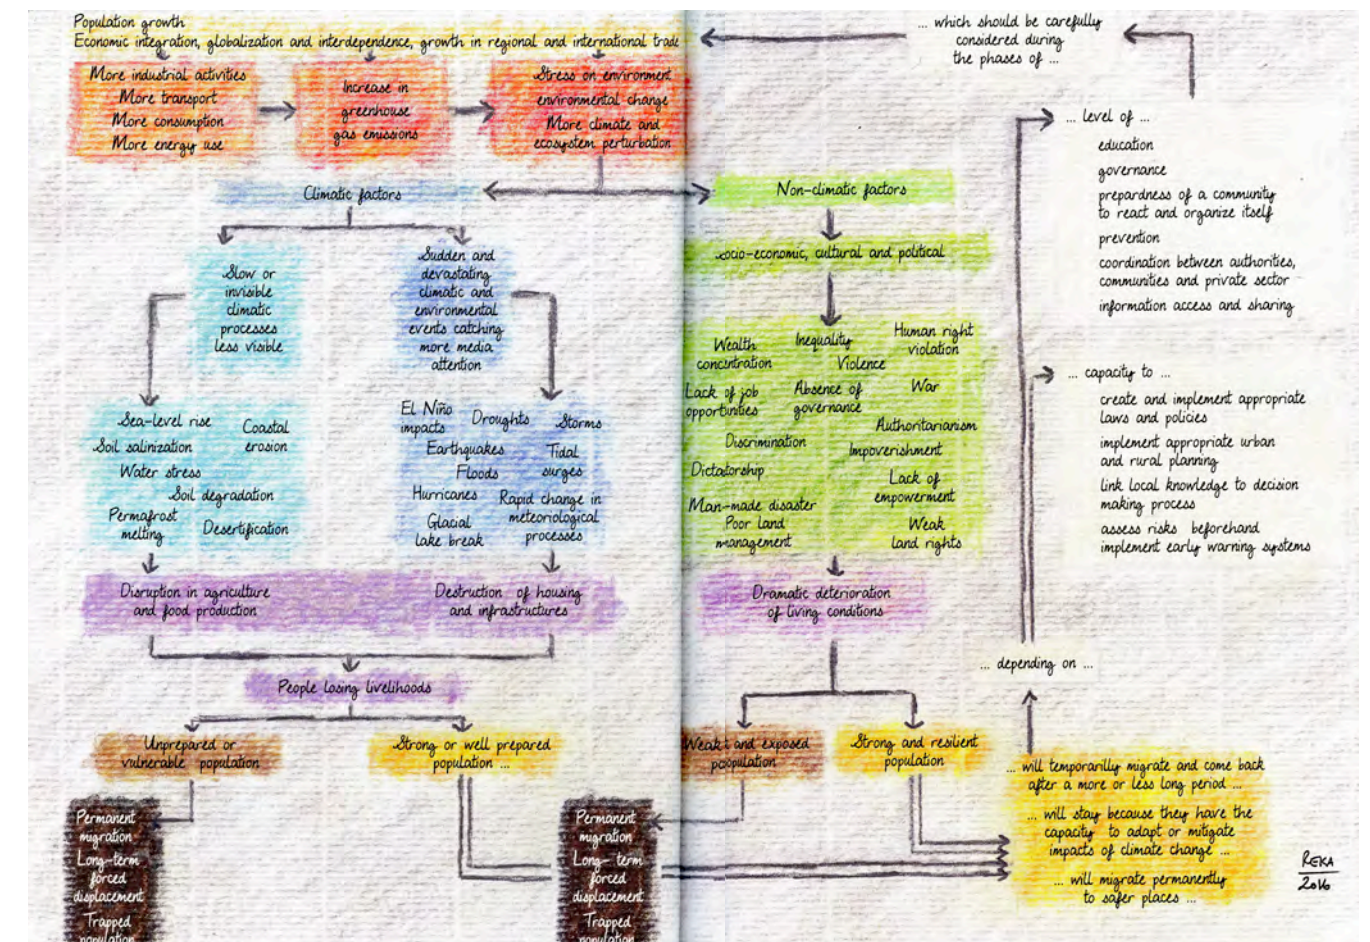 Population growth
Economic integration, globalization and interdependence, growth in regional and international trade
More industrial activities
More transport
More consumption
More energy use
Increase in
greenhouse
gas emissions
Stress on environment
environmental change
More climate and
ecosystem perturbation
... which should be carefully
considered during
the phases of ...
Climatic factors
Non-climatic factors
Slow or
invisible
climatic
processes
less visible
Sudden and
devastating
climatic and
environmental
events catching
more media
attention
Socio-economic, cultural and political
Sea-level rise
Coastal
erosion
Soil salinization
Water stress
Soil degradation
Permafrost
melting
Desertification
El Niño
impacts
Droughts
Storms
Earthquakes
Tidal
surges
Floods
Hurricanes
Rapid change in
meteoriological
processes
Glacial
lake break
Wealth
concentration
Inequality
Human right
violation
Violence
Lack of job
opportunities
Absence of
governance
War
Authoritarianism
Discrimination
Impoverishment
Dictatorship
Lack of
empowerment
Man-made disaster
Poor land
management
Weak
land rights
Disruption in agriculture
and food production
Destruction of housing
and infrastructures
Dramatic deterioration
of living conditions
People losing livelihoods
Unprepared or
vulnerable population
Strong or well prepared
population ...
Weak and exposed
population
Strong and resilient
population
Permanent
migration
Long-term
forced
displacement
Trapped
population
Permanent
migration
Long-term
forced
displacement
Trapped
population
... level of ...
education
governance
prepardness of a community
to react and organize itself
prevention
coordination between authorities,
communities and private sector
information access and sharing
... capacity to ...
create and implement appropriate
laws and policies
implement appropriate urban
and rural planning
link local knowledge to decision
making process
assess risks beforehand
implement early warning systems
... depending on ...
... will temporarilly migrate and come back
after a more or less long period ...
... will stay because they have the
capacity to adapt or mitigate
impacts of climate change ...
... will migrate permanently
to safer places ...
REKA
2016